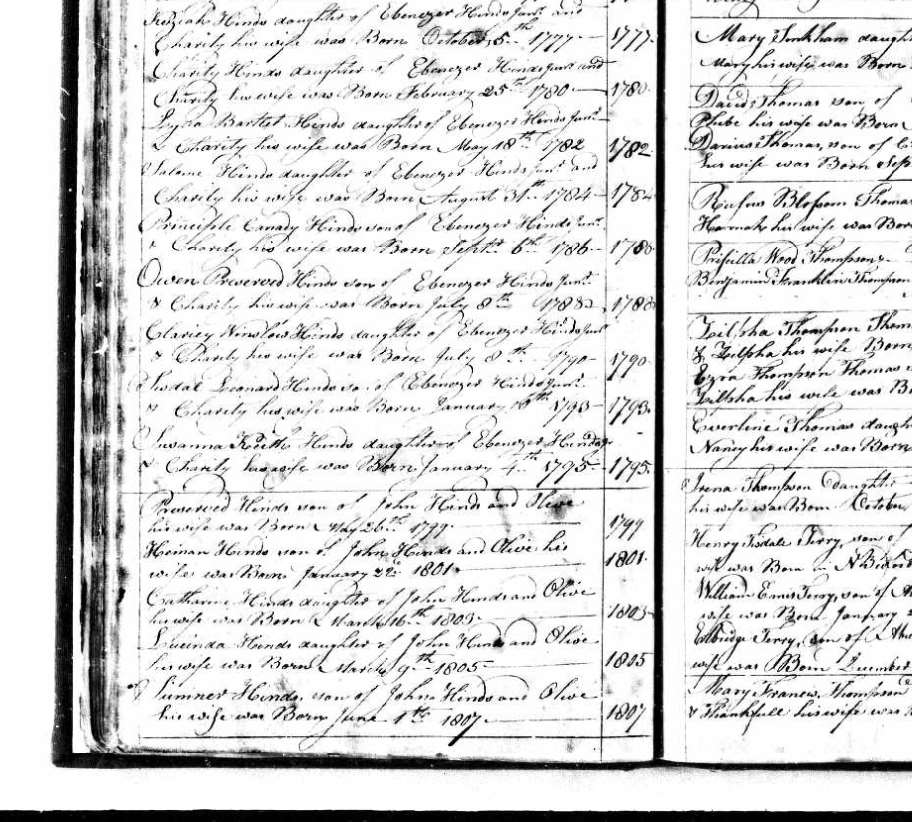 Keziah Hinds daughter of Ebenezer Hinds Junr. and
Charity his wife was Born October 5th 1777 1777
Charity Hinds daughter of Ebenezer Hinds Junr. and
Charity his wife was Born February 25th 1780 1780
Lydia Bartlet Hinds daughter of Ebenezer Hinds Junr.
& Charity his wife was Born May 18th 1782 1782
Salome Hinds daughter of Ebenezer Hinds Junr. and
Charity his wife was Born August 31th 1784 1784
Principle Canady Hinds son of Ebenezer Hinds Junr.
& Charity his wife was Born Septr. 6th 1786 1786
Owen Preserved Hinds son of Ebenezer Hinds Junr.
& Charity his wife was Born July 8th 1788 1788
Winslow Hinds daughter of Ebenezer Hinds Junr.
& Charity his wife was Born July 8th 1790 1790
Leonard Hinds son of Ebenezer Hinds Junr.
& Charity his wife was Born January 1793 1793
Susanna Keith Hinds daughter of Ebenezer Hinds
& Charity his wife was Born January 4th 1795 1795
Preserved Hinds son of John Hinds and Olive
his wife was Born May 26th 1799 1799
Heman Hinds son of John Hinds and Olive his
wife was Born January 22d 1801 1801
Catharine Hinds daughter of John Hinds and Olive
his wife was Born March 16th 1803 1803
Lucinda Hinds daughter of John Hinds and Olive
his wife was Born March 9th 1805 1805
Sumner Hinds son of John Hinds and Olive
his wife was Born June 1th 1807 1807
Mary Sinkham daught
Mary his wife was Born
David Thomas son of
Phebe his wife was Born
Darius Thomas, son of
his wife was Born Sep
Rufus Blossom Thomas
his wife was Born
Priscilla Wood Thompson
Benjamin Franklin Thompson
Zilpha Thompson Thom
& Zilpha his wife Born
Ezra Thompson Thomas
Zilpha his wife was B
Everline Thomas daugh
Nancy his wife was Born
Irena Thompson daughter
his wife was Born October
Henry Tisdale Terry, son of
wife was Born in N Bedford
William Ennis Terry, son of
wife was Born January
Elbridge Terry, son of
wife was Born December
Mary Francis Thompson
& Thankfull his wife was